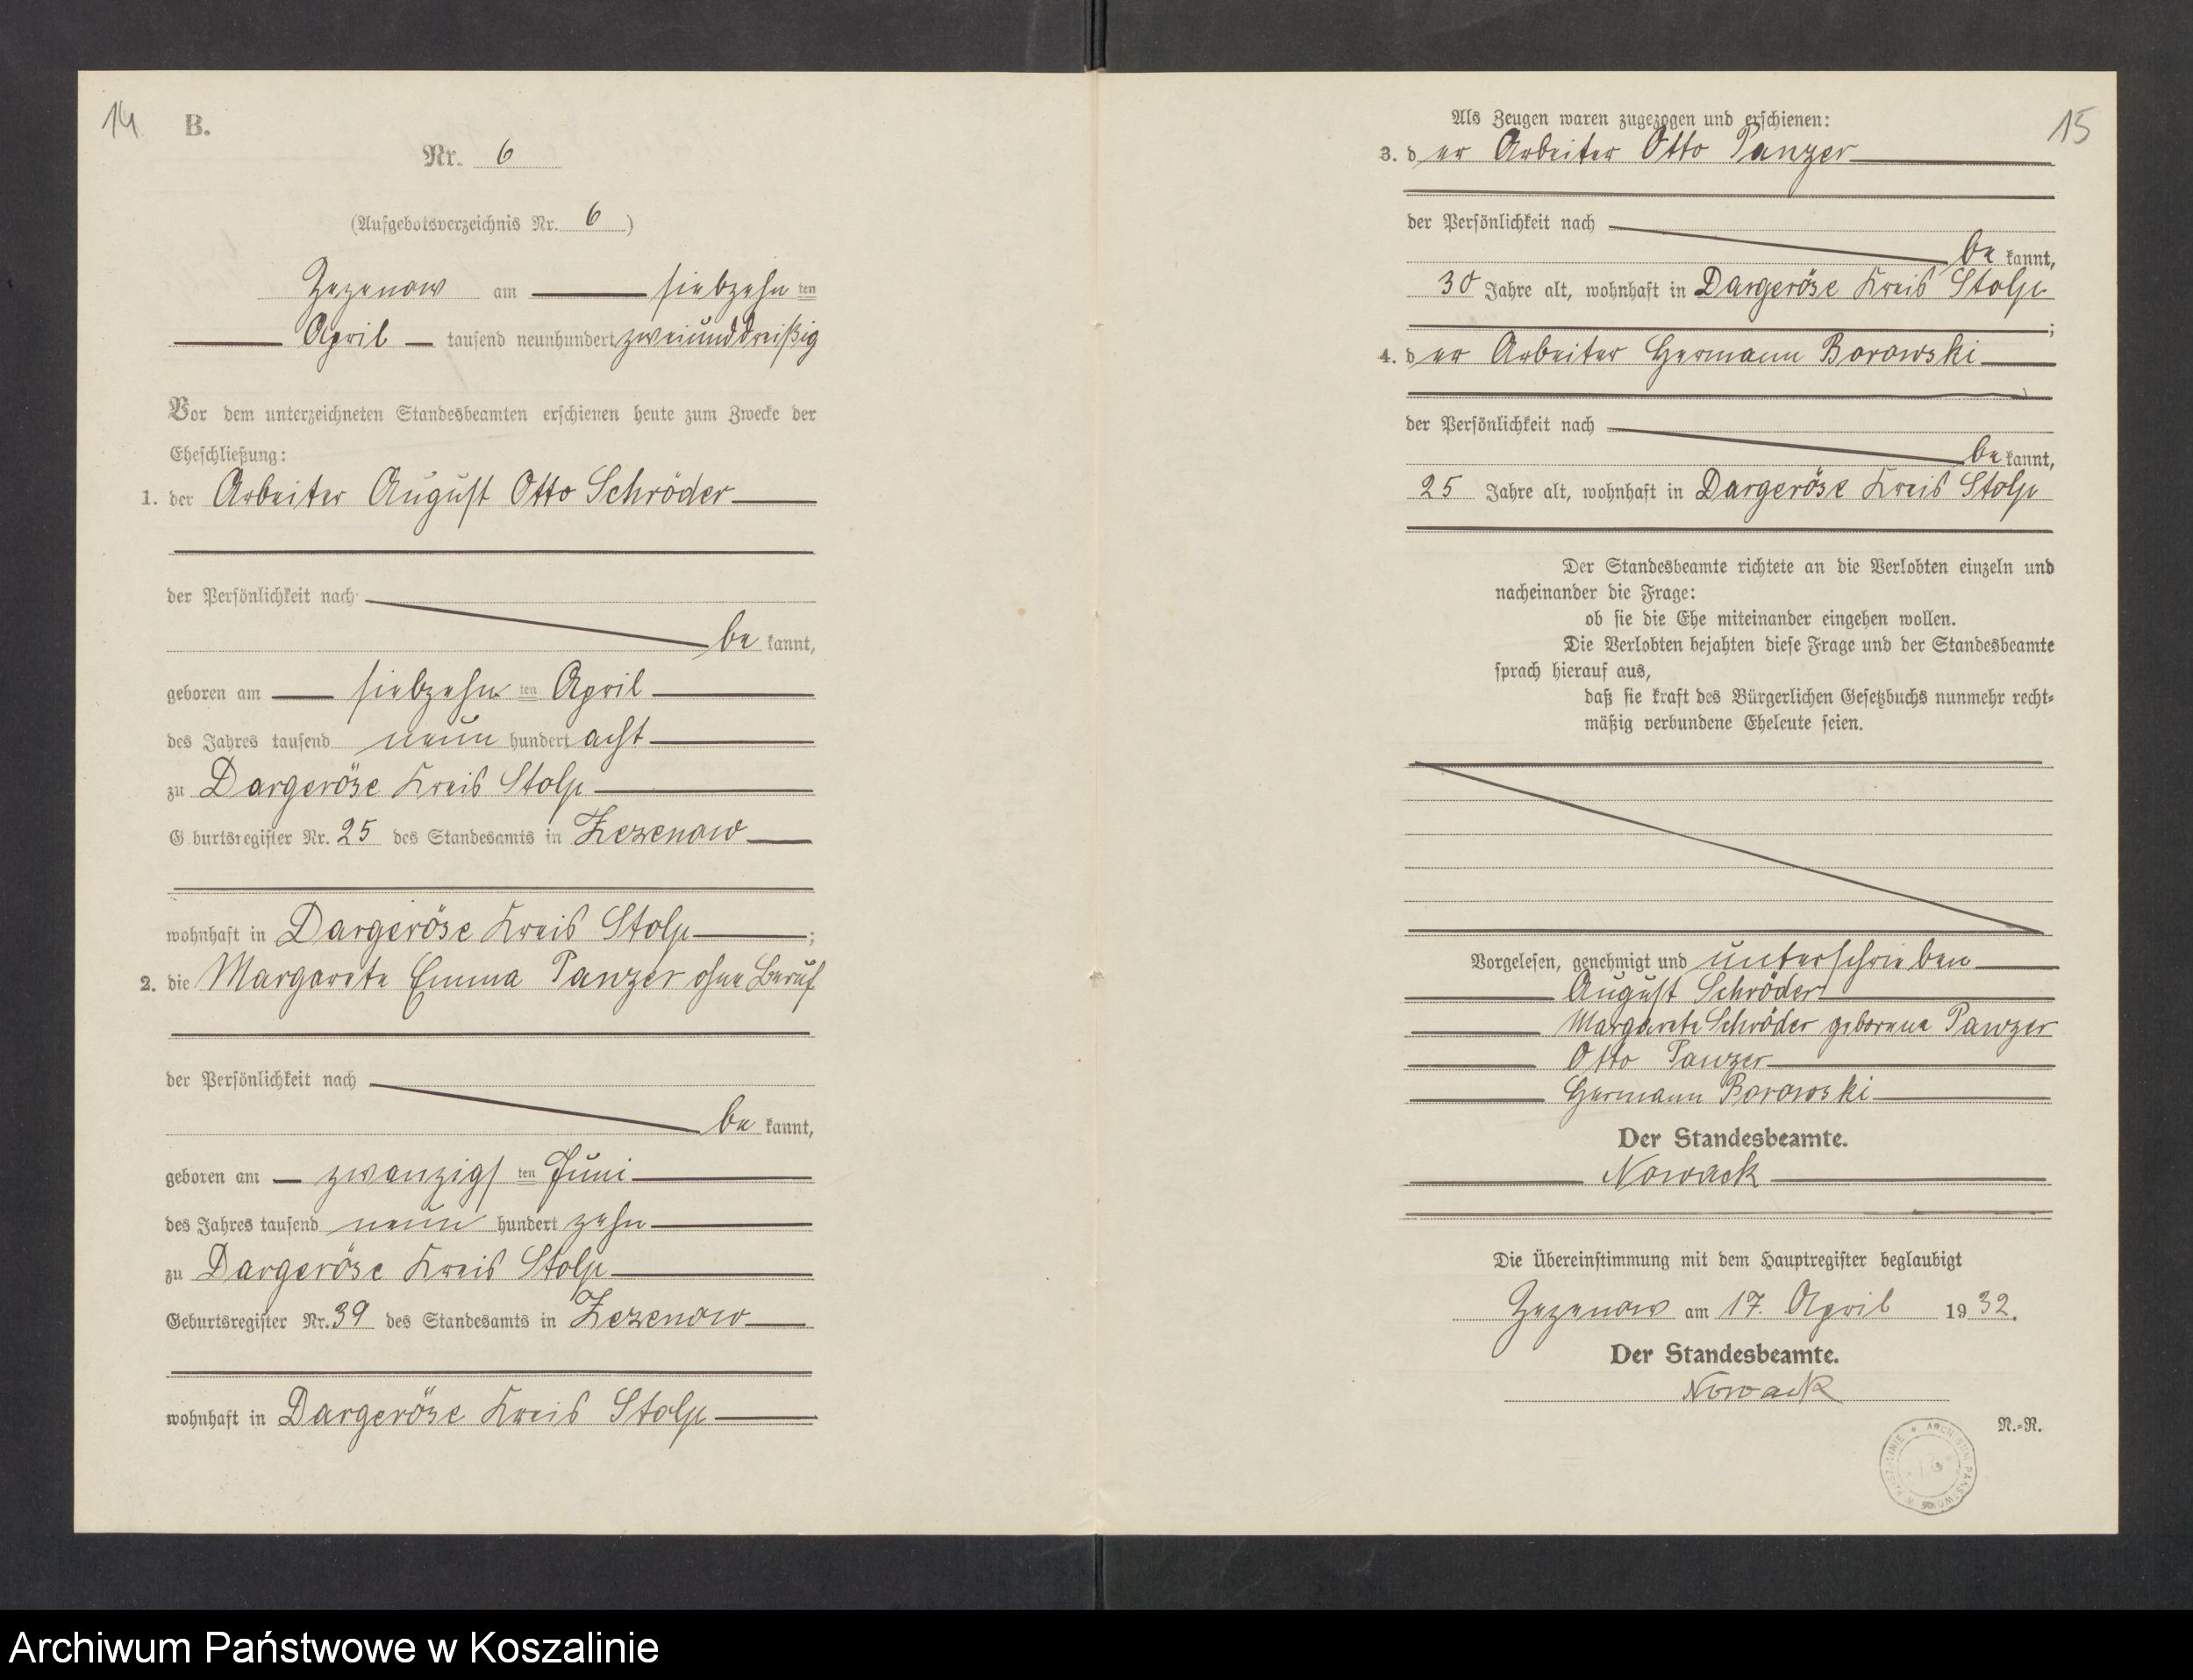 14
B.
Nr. 6
(Aufgebotsverzeichnis Nr. 6)
Zezenow am siebzehnten
April tausend neunhundert zweiunddreißig
Vor dem unterzeichneten Standesbeamten erschienen heute zum Zwecke der
Eheschließung:
1. der Arbeiter August Otto Schröder
der Persönlichkeit nach
bekannt,
geboren am siebzehnten April
des Jahres tausend neun hundert acht
zu Dargeröse Kreis Stolp
G burtsregister Nr. 25 des Standesamts in Zezenow
wohnhaft in Dargeröse Kreis Stolp;
2. die Margarete Emma Panzer ohne Beruf
der Persönlichkeit nach
bekannt,
geboren am zwanzigsten Juni
des Jahres tausend neun hundert zehn
zu Dargeröse Kreis Stolp
Geburtsregister Nr. 39 des Standesamts in Zezenow
wohnhaft in Dargeröse Kreis Stolp
15
Als Zeugen waren zugezogen und erschienen:
3. der Arbeiter Otto Panzer
der Persönlichkeit nach
bekannt,
30 Jahre alt, wohnhaft in Dargeröse Kreis Stolp
;
4. der Arbeiter Hermann Borowski
der Persönlichkeit nach
bekannt,
25 Jahre alt, wohnhaft in Dargeröse Kreis Stolp
Der Standesbeamte richtete an die Verlobten einzeln und
nacheinander die Frage:
ob sie die Ehe miteinander eingehen wollen.
Die Verlobten bejahten diese Frage und der Standesbeamte
sprach hierauf aus,
daß sie kraft des Bürgerlichen Gesetzbuchs nunmehr recht-
mäßig verbundene Eheleute seien.
Vorgelesen, genehmigt und unterschrieben
August Schröder
Margarete Schröder geborene Panzer
Otto Panzer
Hermann Borowski
Der Standesbeamte.
Nowack
Die Übereinstimmung mit dem Hauptregister beglaubigt
Zezenow am 17. April 1932.
Der Standesbeamte.
Nowack
N.-R.
Archiwum Państwowe w Koszalinie